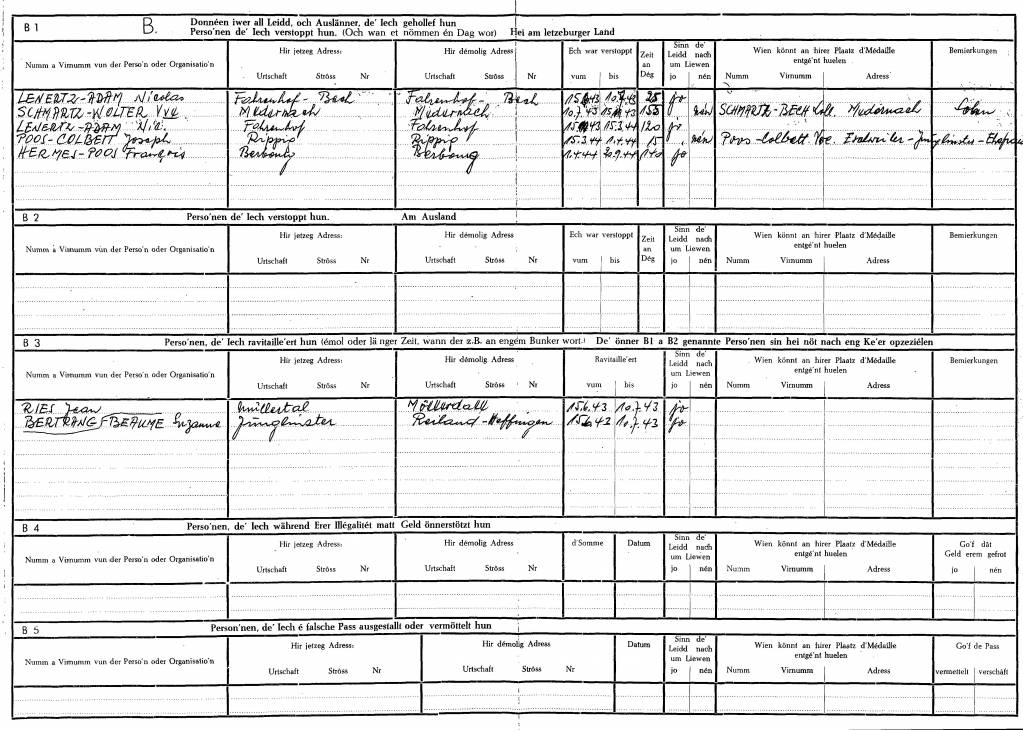 B 1 B. Donnéen iwer all Leidd, och Auslänner, de' Iech gehollef hun
Perso'nen de' Iech verstoppt hun. (Och wan et nömmen én Dag wor) Hei am letzeburger Land
Numm a Virnumm vun der Perso'n oder Organisatio'n Hir jetzeg Adress: Hir démolig Adress: Ech war verstoppt Zeit an Dég Sinn de' Leidd nach um Liewen Wien könnt an hirer Plaatz d'Médaille entgé'nt huelen Bemierkungen
Urtschaft Ströss Nr Urtschaft Ströss Nr vum bis jo nén Numm Virnumm Adress
LENERTZ-ADAM Nicolas Fahrenhof - Bech Fahrenhof - Bech 10.7.43 25 jo
SCHMARTZ-WOLTER Vve Medernach Medernach 10.7.43 nén SCHMARTZ-BECH Medernach Sohn
LENERTZ-ADAM Nic. Fahrenhof Fahrenhof 15.3.44 120 jo
POOS-COLBETT Joseph Rippig Rippig 15.3.44 1.4.44 15 nén Poos-Colbett Vve. - Junglinster - Ehefrau
HERMES-POOS François Berbourg Berbourg 1.4.44 20.9.44 140 jo
B 2 Perso'nen de' Iech verstoppt hun. Am Ausland
Numm a Virnumm vun der Perso'n oder Organisatio'n Hir jetzeg Adress: Hir démolig Adress: Ech war verstoppt Zeit an Dég Sinn de' Leidd nach um Liewen Wien könnt an hirer Plaatz d'Médaille entgé'nt huelen Bemierkungen
Urtschaft Ströss Nr Urtschaft Ströss Nr vum bis jo nén Numm Virnumm Adress
B 3 Perso'nen, de' Iech ravitaille'ert hun (émol oder länger Zeit, wann der z.B. an engem Bunker wort.) De' önner B1 a B2 genannte Perso'nen sin hei nöt nach eng Ke'er opzeziélen
Numm a Virnumm vun der Perso'n oder Organisatio'n Hir jetzeg Adress: Hir démolig Adress Ravitaille'ert Sinn de' Leidd nach um Liewen Wien könnt an hirer Plaatz d'Médaille entgé'nt huelen Bemierkungen
Urtschaft Ströss Nr Urtschaft Ströss Nr vum bis jo nén Numm Virnumm Adress
RIES Jean Müllertal Möllerdall 15.6.43 10.7.43 jo
BERTRANG-BEAUME Suzanne Junglinster Reiland-Heffingen 15.6.43 10.7.43 jo
B 4 Perso'nen, de' Iech während Erer Illégalitét matt Geld önnerstötzt hun
Numm a Virnumm vun der Perso'n oder Organisatio'n Hir jetzeg Adress: Hir démolig Adress d'Somme Datum Sinn de' Leidd nach um Liewen Wien könnt an hirer Plaatz d'Médaille entgé'nt huelen Go'f dât Geld erem gefrot
Urtschaft Ströss Nr Urtschaft Ströss Nr jo nén Numm Virnumm Adress jo nén
B 5 Person'nen, de' Iech é falsche Pass ausgestallt oder vermöttelt hun
Numm a Virnumm vun der Perso'n oder Organisatio'n Hir jetzeg Adress: Hir démolig Adress Datum Sinn de' Leidd nach um Liewen Wien könnt an hirer Plaatz d'Médaille entgé'nt huelen Go'f de Pass
Urtschaft Ströss Nr Urtschaft Ströss Nr jo nén Numm Virnumm Adress vermettelt verschâft